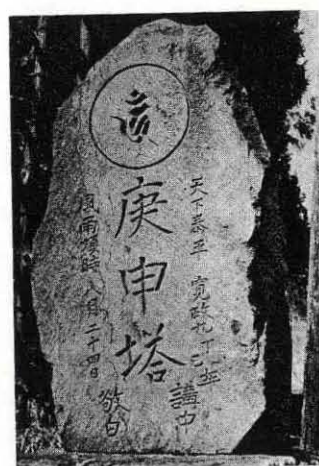 天下泰平 寛政九丁巳年
講中
庚申塔
風雨順時 八月二十四日
敬白